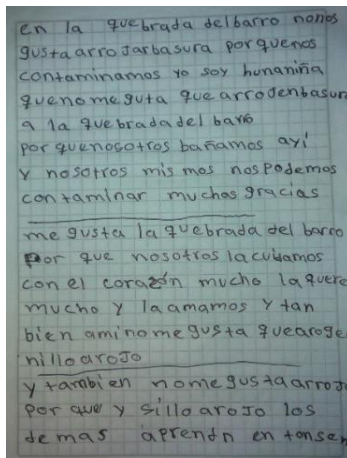 en la quebrada del barro nonos
gusta arrojar basura por quenos
contaminamos yo soy huna niña
quenome guta que arrojen basura
a la quebrada del barro
por quenosotros bañamos ayí
y nosotros mismos nos podemos
contaminar muchas gracias
me gusta la quebrada del barro
por que nosotros la cubamos
con el corazón mucho la quere
mucho y la amamos y tan
bien aminome gusta quearoge
nillo arojo
y tambien nome gusta arroj
por que y sillo arojo los
demas aprendn en tonsen